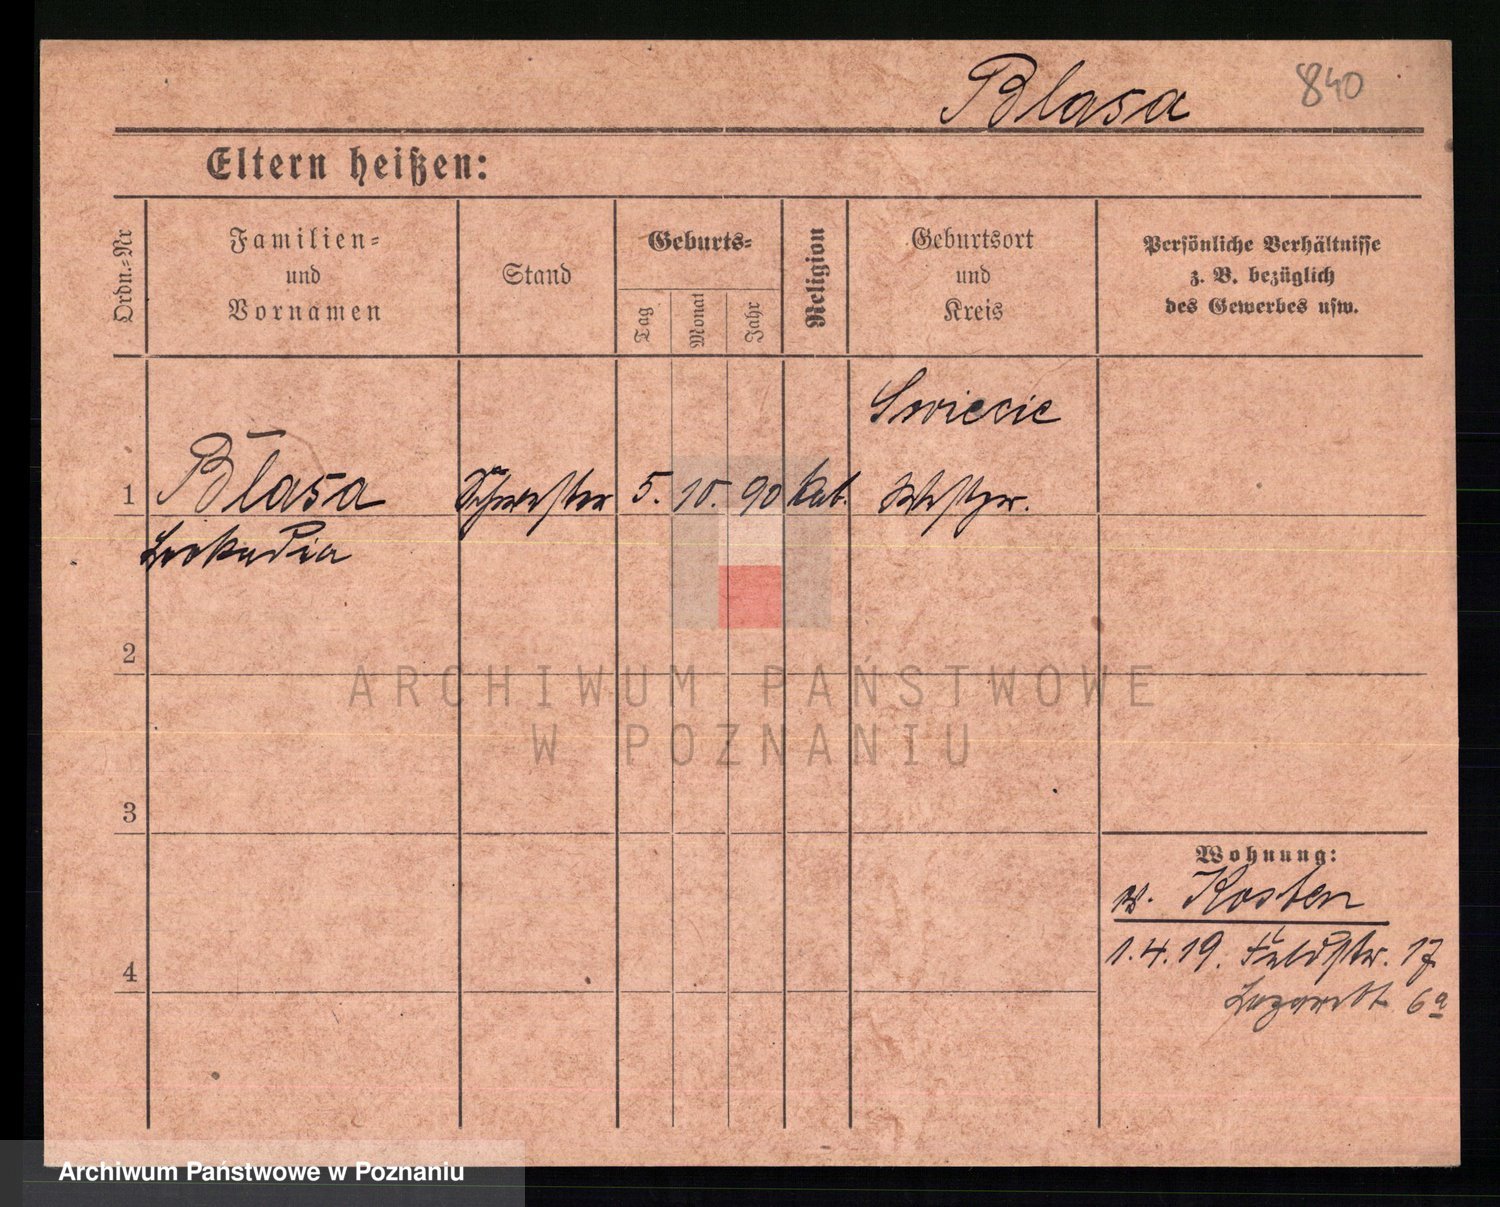 Blasa 840
Eltern heißen:
Ordn.-Nr
Familien-
und
Vornamen
Stand
Geburts-
Tag
Monat
Jahr
Religion
Geburtsort
und
Kreis
Persönliche Verhältnisse
z. B. bezüglich
des Gewerbes usw.
Swiecie
1 Blasa Schwester 5. 10. 90 kat. Westpr.
Leokadia
2
3
4
Wohnung:
v. Kosten
1.4.19. Feldstr. 17
Lazarett 6a
ARCHIWUM PAŃSTWOWE
W POZNANIU
Archiwum Państwowe w Poznaniu